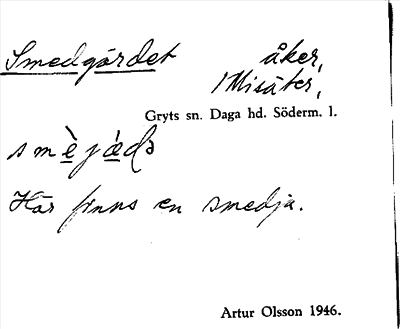 Smedgärdet åker,
1 Misäter,
Gryts sn. Daga hd. Söderm. l.
smè̱jǽ̱də
Här finns en smedja.
Artur Olsson 1946.